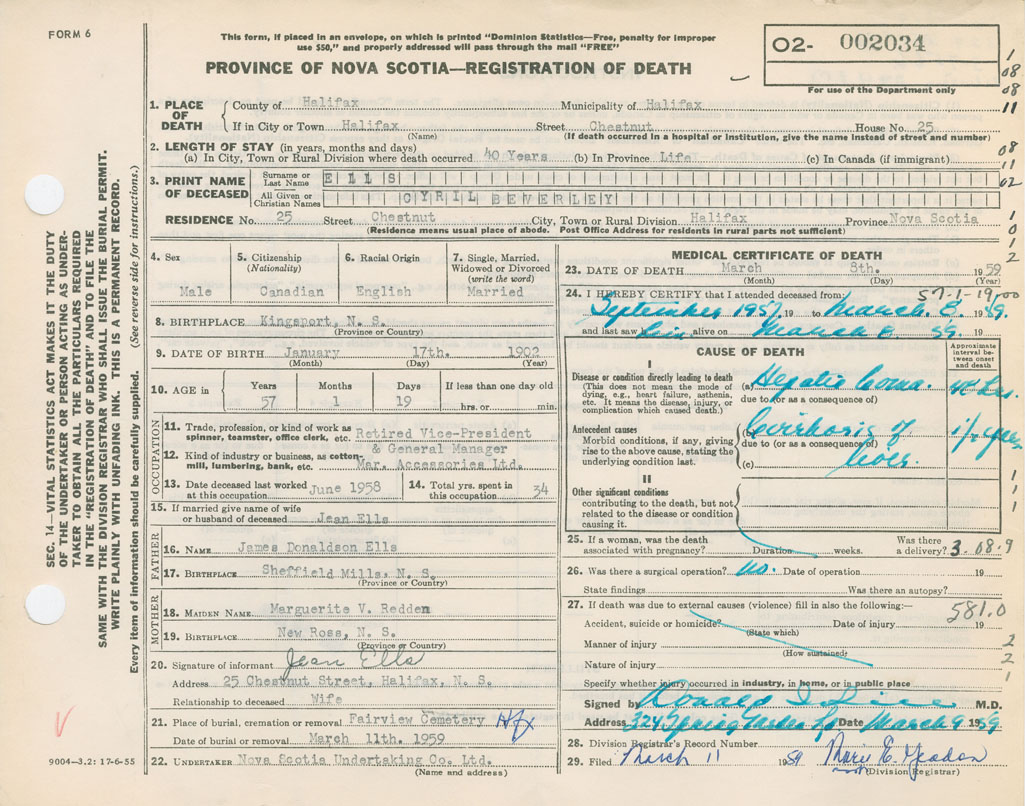 FORM 6
This form, if placed in an envelope, on which is printed "Dominion Statistics—Free, penalty for improper
use $50," and properly addressed will pass through the mail "FREE"
PROVINCE OF NOVA SCOTIA—REGISTRATION OF DEATH
02- 002034
For use of the Department only
1. PLACE OF DEATH County of Halifax Municipality of Halifax
If in City or Town Halifax Street Chestnut House No. 25
(Name) (If death occurred in a hospital or institution, give the name instead of street and number)
2. LENGTH OF STAY (in years, months and days)
(a) In City, Town or Rural Division where death occurred 40 Years (b) In Province Life (c) In Canada (if immigrant)
3. PRINT NAME OF DECEASED Surname or Last Name ELLS
All Given or Christian Names CYRIL BEVERLEY
RESIDENCE No. 25 Street Chestnut City, Town or Rural Division Halifax Province Nova Scotia
(Residence means usual place of abode. Post Office Address for residents in rural parts not sufficient)
4. Sex Male
5. Citizenship (Nationality) Canadian
6. Racial Origin English
7. Single, Married, Widowed or Divorced (write the word) Married
8. BIRTHPLACE Kingsport, N. S.
(Province or Country)
9. DATE OF BIRTH January 17th. 1902
(Month) (Day) (Year)
10. AGE in Years 57 Months 1 Days 19 If less than one day old hrs. or min.
OCCUPATION
11. Trade, profession, or kind of work as spinner, teamster, office clerk, etc. Retired Vice-President
& General Manager
12. Kind of industry or business, as cotton-mill, lumbering, bank, etc. Mar. Accessories Ltd.
13. Date deceased last worked at this occupation June 1958
14. Total yrs. spent in this occupation 34
15. If married give name of wife or husband of deceased Jean Ells
FATHER
16. NAME James Donaldson Ells
17. BIRTHPLACE Sheffield Mills, N. S.
(Province or Country)
MOTHER
18. MAIDEN NAME Marguerite V. Redden
19. BIRTHPLACE New Ross, N. S.
(Province or Country)
20. Signature of informant Jean Ells
Address 25 Chestnut Street, Halifax, N. S.
Relationship to deceased Wife
21. Place of burial, cremation or removal Fairview Cemetery Hfx
Date of burial or removal March 11th. 1959
22. UNDERTAKER Nova Scotia Undertaking Co. Ltd.
(Name and address)
MEDICAL CERTIFICATE OF DEATH
23. DATE OF DEATH March 8th. 1959
(Month) (Day) (Year)
57-1-19-00
24. I HEREBY CERTIFY that I attended deceased from:
September 1957 19 to March. 8. 1959.
and last saw him alive on March 8. 59. 19
CAUSE OF DEATH
Approximate interval between onset and death
I
Disease or condition directly leading to death
(This does not mean the mode of dying, e.g., heart failure, asthenia, etc. It means the disease, injury, or complication which caused death.)
(a) Hepatic Coma.
due to (or as a consequence of)
Antecedent causes
Morbid conditions, if any, giving rise to the above cause, stating the underlying condition last.
(b) Cirrhosis of
due to (or as a consequence of)
(c) liver.
II
Other significant conditions
contributing to the death, but not related to the disease or condition causing it.
25. If a woman, was the death associated with pregnancy? Duration weeks. Was there a delivery? 3.08.9
26. Was there a surgical operation? no. Date of operation 19
State findings Was there an autopsy?
27. If death was due to external causes (violence) fill in also the following:— 581.0
Accident, suicide or homicide? Date of injury 19
(State which)
Manner of injury
(How sustained)
Nature of injury
Specify whether injury occurred in industry, in home, or in public place
Signed by Ronald M.D.
Address 324 Spring Garden Date March 9 1959.
28. Division Registrar's Record Number
29. Filed March 11 1959 Mary E.
(Division Registrar)
SEC. 14—VITAL STATISTICS ACT MAKES IT THE DUTY
OF THE UNDERTAKER OR PERSON ACTING AS UNDER-
TAKER TO OBTAIN ALL THE PARTICULARS REQUIRED
IN THE "REGISTRATION OF DEATH" AND TO FILE THE
SAME WITH THE DIVISION REGISTRAR WHO SHALL ISSUE THE BURIAL PERMIT.
WRITE PLAINLY WITH UNFADING INK. THIS IS A PERMANENT RECORD.
Every item of information should be carefully supplied. (See reverse side for instructions.)
9004—3.2: 17-6-55
1
08
08
11
08
11
02
1
0
1
2
1
1
1
2
2
1